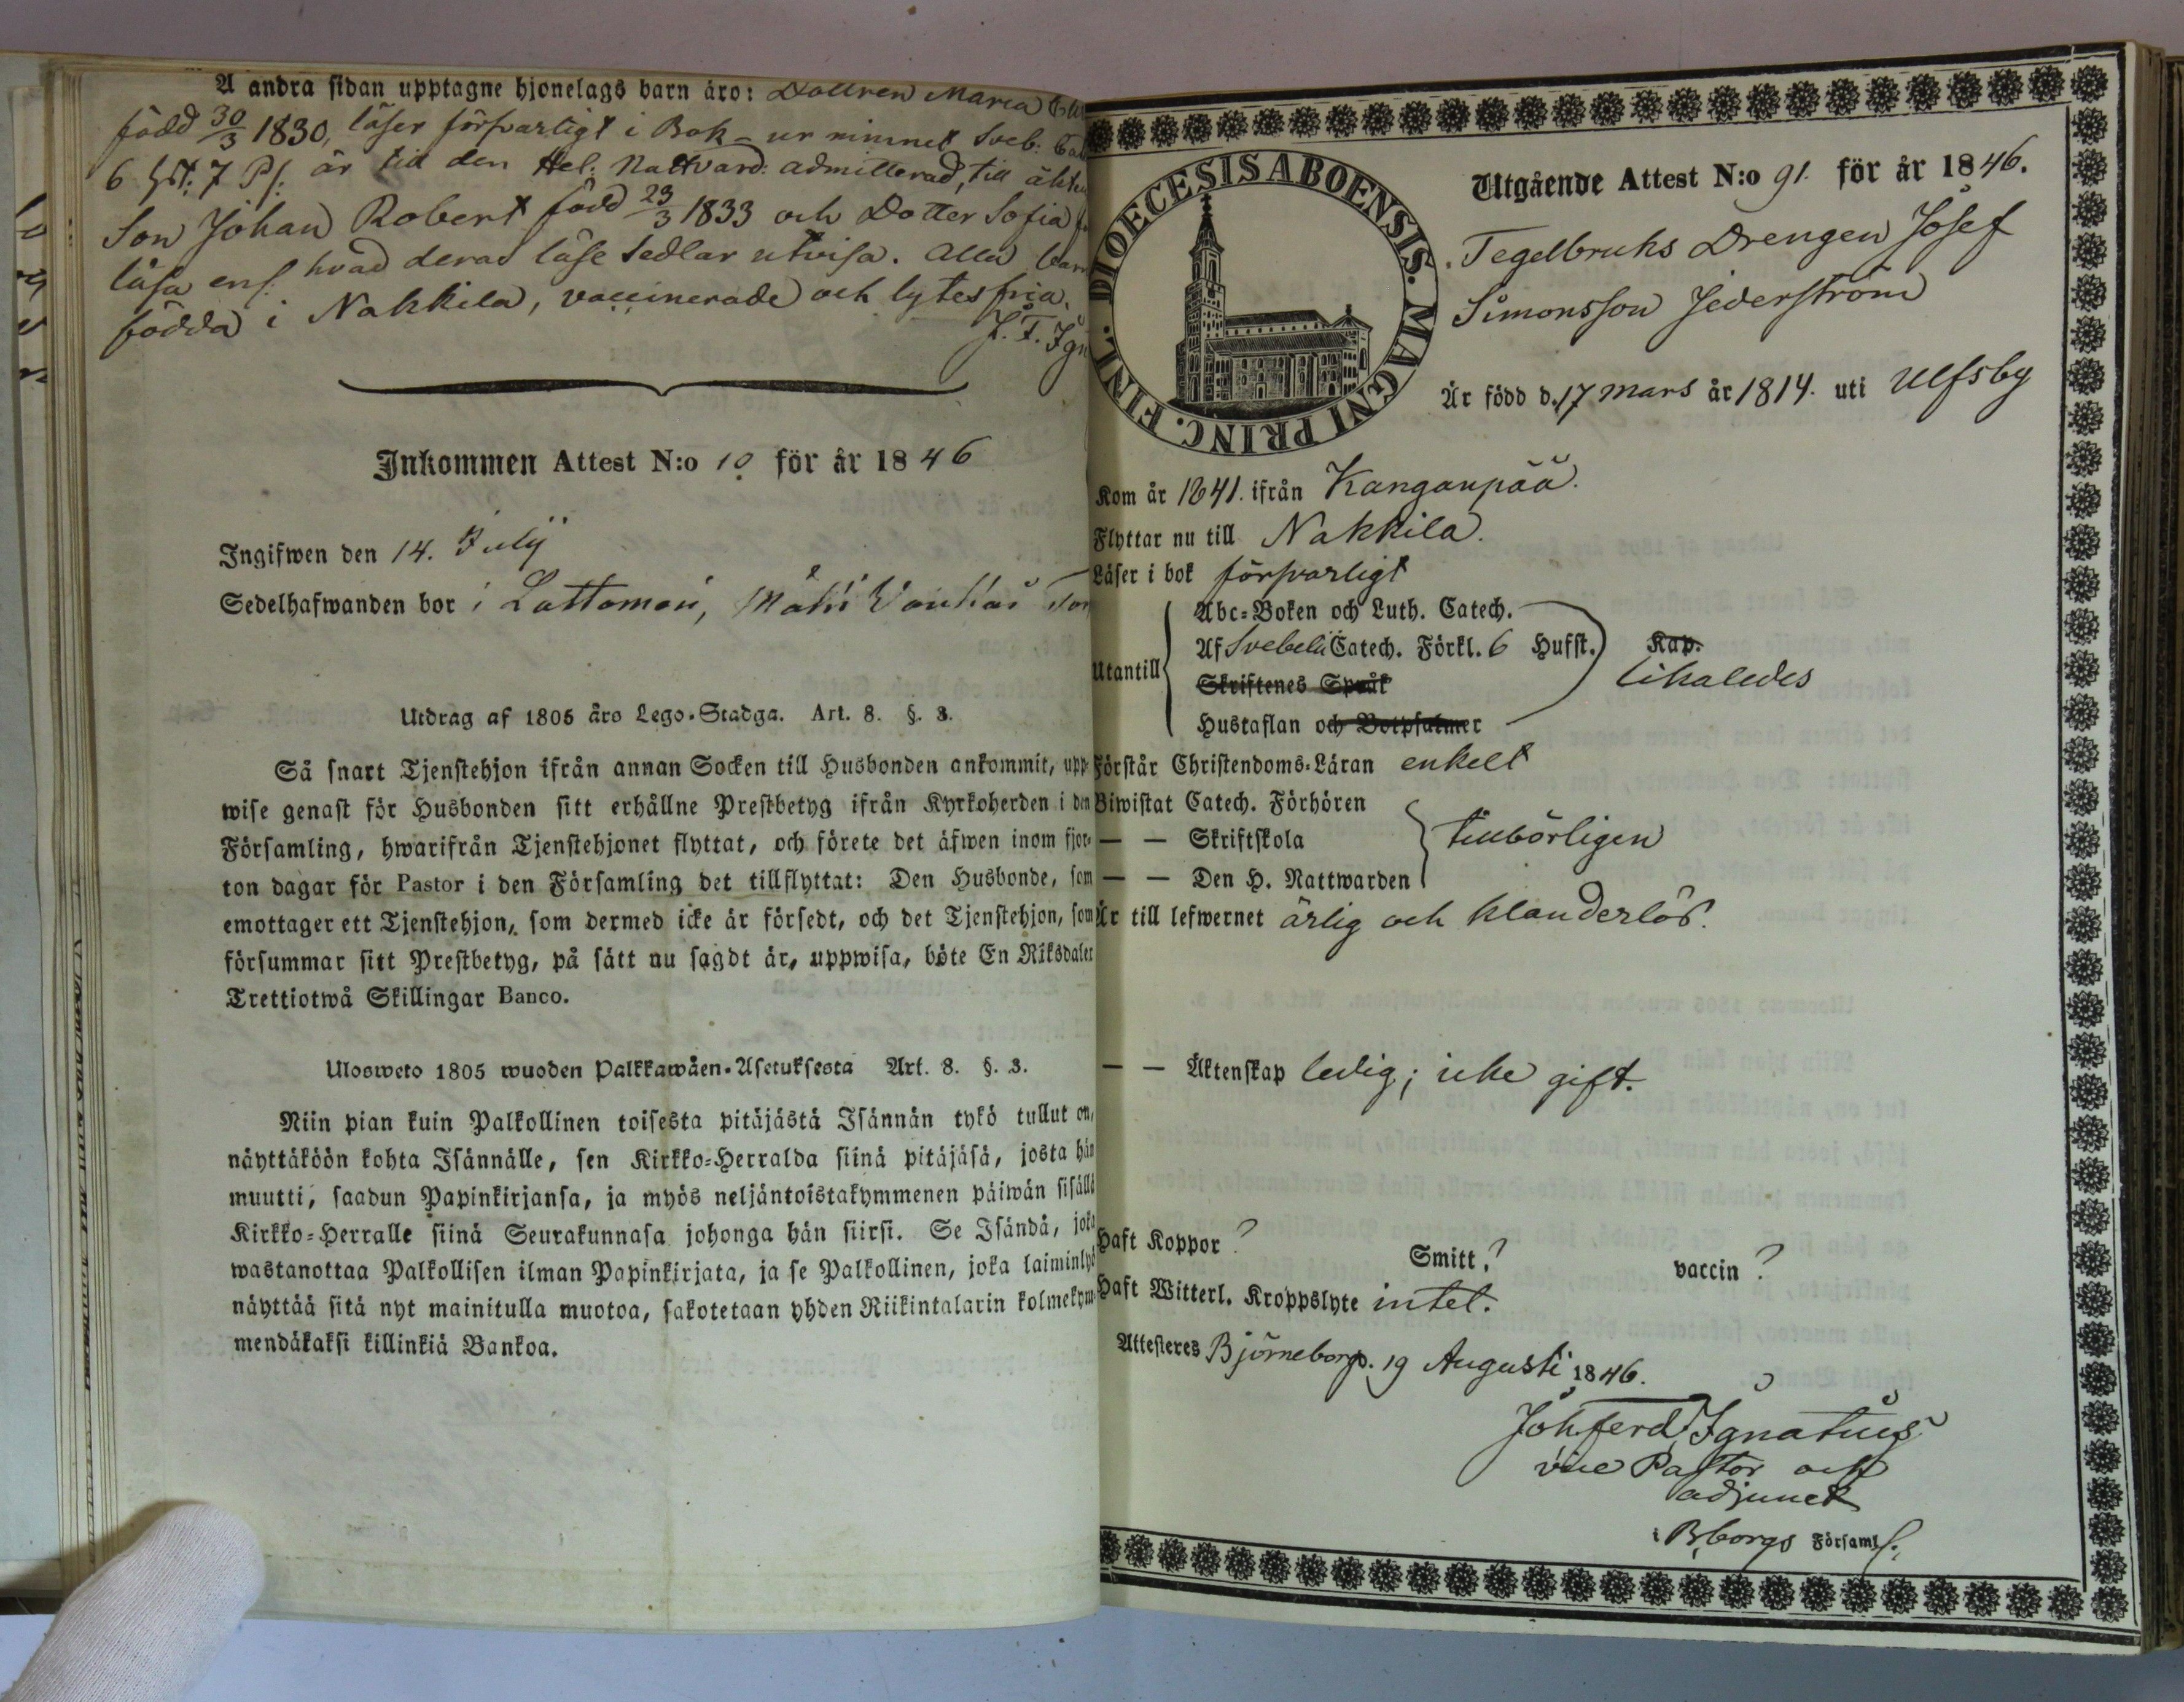 Å andra sidan upptagne hjonelags barn äro: Dottren Maria
född 30/3 1830, läser försvarligt i Bok - ur minnet Sveb:
6 Hst: 7 Ps: är till den Hel: Nattvard: admitterad, till
Son Johan Robert född 23/3 1833 och Dotter Sofia
läsa enl. hvad deras läse Sedlar utvisa. Alla barn
födda i Nakkila, vaccinerade och lytesfria.
J. F. Ign
Inkommen Attest N:o 10. för år 1846
Ingifwen den 14. Julij
Sedelhafwanden bor i Lattomeri,
Utdrag af 1805 års Lego-Stadga. Art. 8. §. 3.
Så snart Tjenstehjon ifrån annan Socken till Husbonden ankommit, upp-
wise genast för Husbonden sitt erhållne Prestbetyg ifrån Kyrkoherden i den
Församling, hwarifrån Tjenstehjonet flyttat, och förete det äfwen inom fjor-
ton dagar för Pastor i den Församling det tillflyttat: Den Husbonde, som
emottager ett Tjenstehjon, som dermed icke är försedt, och det Tjenstehjon, som
försummar sitt Prestbetyg, på sätt nu sagdt är, uppwisa, böte En Riksdaler
Trettiotwå Skillingar Banco.
Ulosweto 1805 wuoden Palkkawäen-Asetuksesta Art. 8. §. 3.
Niin pian kuin Palkollinen toisesta pitäjästä Isännän tykö tullut on,
näyttäköön kohta Isännälle, sen Kirkko-Herralda siinä pitäjäsä, josta hän
muutti, saadun Papinkirjansa, ja myös neljäntoistakymmenen päiwän sisällä
Kirkko-Herralle siinä Seurakunnasa johonga hän siirsi. Se Isändä, joka
wastanottaa Palkollisen ilman Papinkirjata, ja se Palkollinen, joka laiminlyö
näyttää sitä nyt mainitulla muotoa, sakotetaan yhden Riikintalarin kolmekym-
mendäkaksi killinkiä Bankoa.
DIOECESIS ABOENSIS. MAGNI PRINC. FINL.
Utgående Attest N:o 91. för år 1846.
Tegelbruks Drengen Josef
Simonsson Jederström
Är född d. 17 Mars år 1814. uti Ulfsby
Kom år 1841. ifrån Kangaupää.
Flyttar nu till Nakkila.
Läser i bok försvarligt
Utantill
Abc-Boken och Luth. Catech.
Af Svebelii Catech. Förkl. 6 Hufst. Kap.
Skriftenes Språk
likaledes
Hustaflan och Botpsalmer
Förstår Christendoms-Läran enkelt
Biwistat Catech. Förhören
— — Skriftskola
tillbörligen
— — Den H. Nattwarden
Är till lefwernet ärlig och klanderlös.
— — Äktenskap ledig; icke gift.
Haft Koppor ? Smitt ? vaccin ?
Haft Witterl. Kroppslyte intet.
Attesteres Björneborg d. 19 Augusti 1846.
Joh Ferd Ignatius
vice Pastor och
adjunct
i Bborgs Församl.